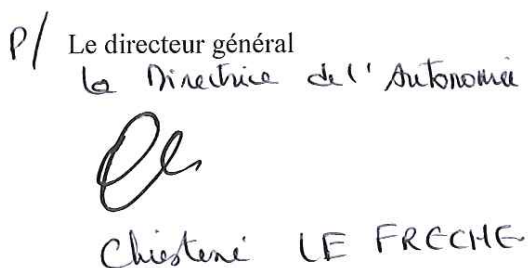 P/ Le directeur général
la Directrice de l'Autonomie
LE FRECHE